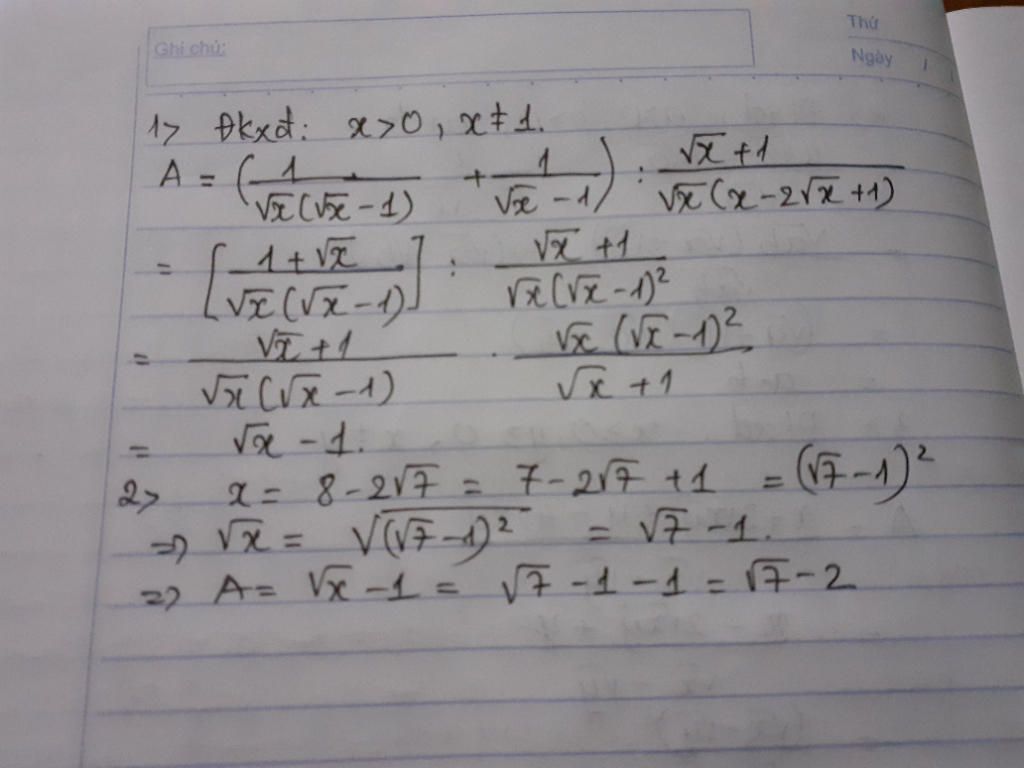 Ghi chú:
Thứ
Ngày / /
1> Đkxđ: x>0, x≠1.
A = (1/(√x(√x-1)) + 1/(√x-1)) : (√x+1)/(√x(x-2√x+1))
= [(1+√x)/(√x(√x-1))] : (√x+1)/(√x(√x-1)²)
= (√x+1)/(√x(√x-1)) . (√x(√x-1)²)/(√x+1)
= √x - 1.
2> x = 8-2√7 = 7-2√7+1 = (√7-1)²
=> √x = √((√7-1)²) = √7-1.
=> A = √x-1 = √7-1-1 = √7-2